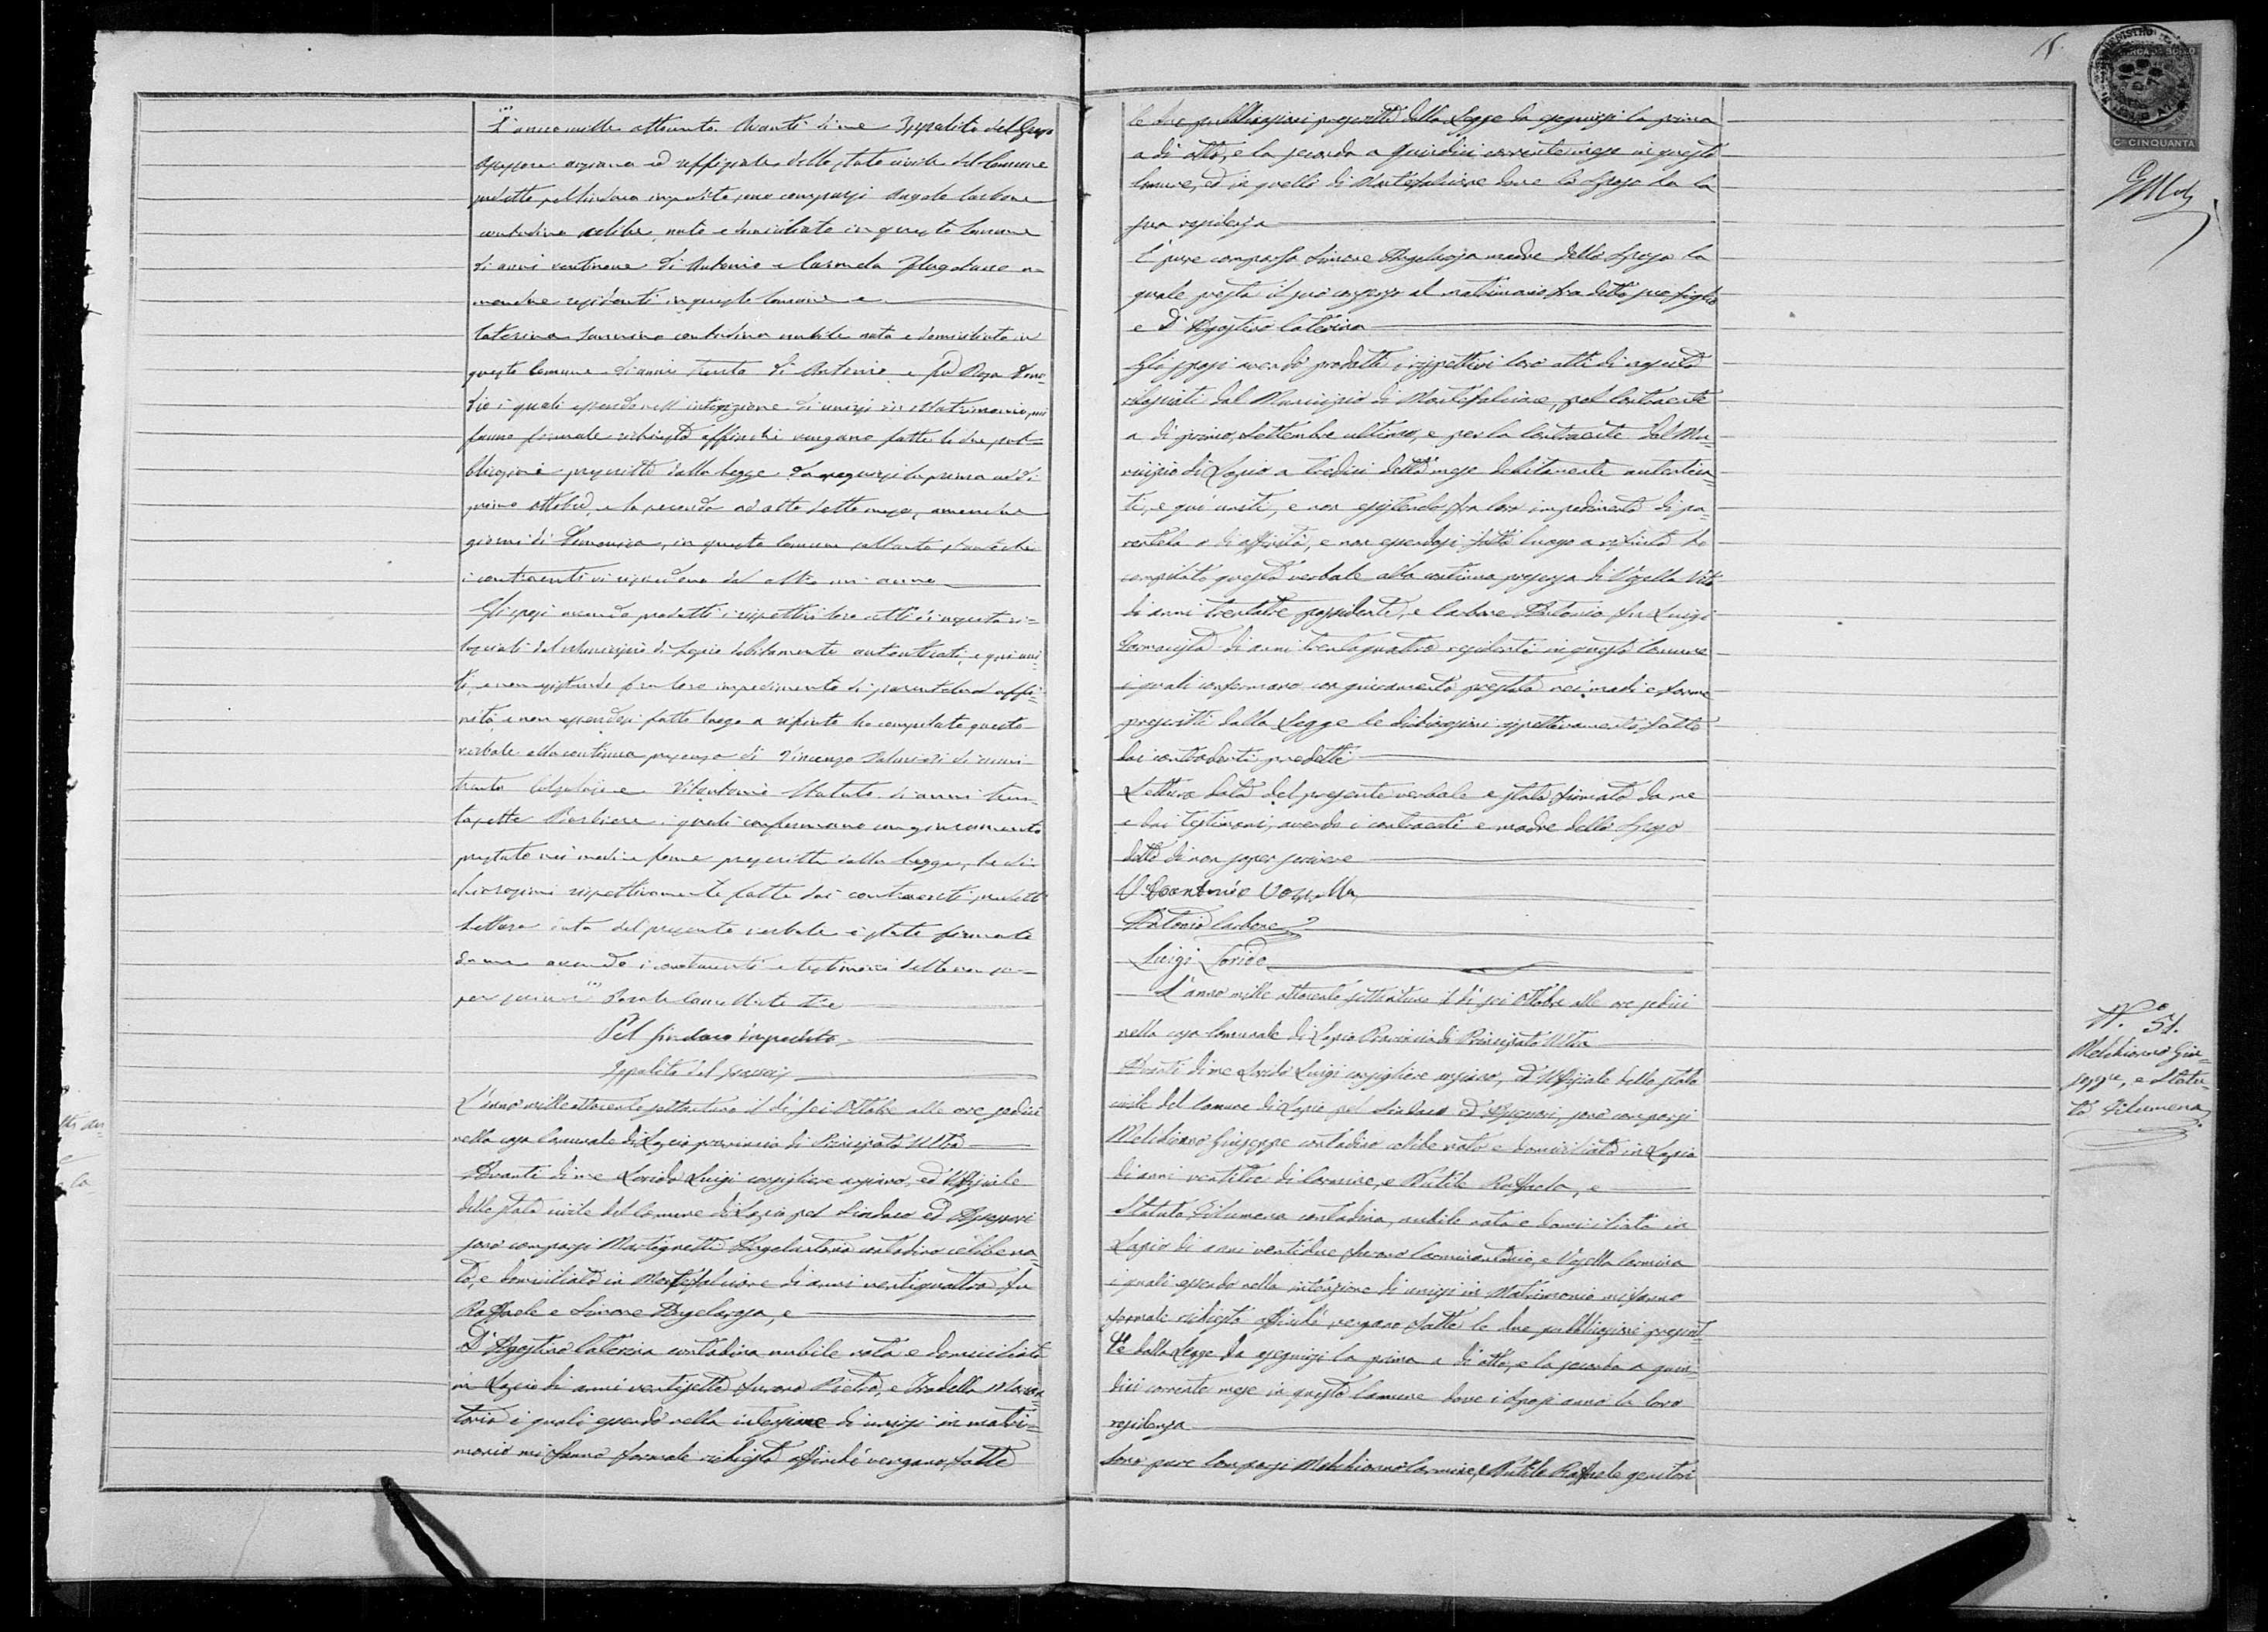 L'anno mille ottocento. Avanti di me Ippolito del Grosso
Assessore anziano ed uffiziale dello stato civile del Comune
predetto, pel Sindaco impedito, sono comparsi Angelo Carbone
contadino celibe, nato e domiciliato in questo Comune
di anni ventinove di Antonio e Carmela
residenti in questo Comune e
Caterina contadina nubile nata e domiciliata in
questo Comune di anni trenta di Antonio e fu Rosa
i quali essendo nell'intenzione di unirsi in Matrimonio, mi
fanno formale richiesta affinchè vengano fatte le due pub=
blicazioni prescritte dalla Legge da eseguirsi la prima ad dì
primo ottobre, e la seconda ad otto detto mese, amendue
giorni di Domenica, in questo Comune soltanto
i contraenti vi risiedono da oltre un anno
Gli sposi avendo prodotti i rispettivi loro atti di nascita ri=
lasciati dal Municipio di Lapio debitamente autenticati, e qui uni=
ti, e non esistendo fra loro impedimento di parentela od affi=
nità e non essendosi fatto luogo a rifiuto ho compilato questo
verbale alla continua presenza di Vincenzo di anni
trenta Calzolajo e Vitantonio Statuto di anni tren=
tasette Barbiere i quali confermano con giuramento
prestato nei modi e forme prescritti dalla Legge, le di=
chiarazioni rispettivamente fatte dai contraenti predetti
Lettura data del presente verbale è stato firmato
da me avendo i contraenti e testimoni detto non sa=
per scrivere
Pel Sindaco impedito
Ippolito del Grosso
L'anno mille ottocento settantuno il dì sei Ottobre alle ore sedici
nella casa Comunale di Lapio provincia di Principato Ultra
Avanti di me Lorido Luigi consigliere anziano, ed Uffiziale
dello stato civile del Comune di Lapio pel Sindaco ed Assessori
sono comparsi Martignetti Angelantonio contadino celibe na=
to, e domiciliato in Montefalcione di anni ventiquattro fu
Raffaele e Simone Angelarosa, e
D'Agostino Caterina contadina nubile nata e domiciliata
in Lapio di anni ventisette furono Pietro, e Iradella
i quali essendo nella intenzione di unirsi in matri=
monio mi fanno formale richiesta affinchè vengano fatte
15.
C.mi CINQUANTA
le due pubblicazioni prescritte dalla Legge da eseguirsi la prima
a dì otto, e la seconda a quindici corrente mese in questo
Comune, ed in quello di Montefalcione dove lo Sposo ha la
sua residenza
È pure comparsa Simone Angelarosa madre dello Sposo la
quale presta il suo consenso al matrimonio fra detto suo figlio
e D'Agostino Caterina
Gli sposi avendo prodotti i rispettivi loro atti di nascita
rilasciati dal Municipio di Montefalcione, pel Contraente
a dì primo Settembre ultimo, e per la Contraente dal Mu=
nicipio di Lapio a tredici detto mese debitamente autentica=
ti, e quì uniti, e non esistendo fra loro impedimento di pa=
rentela o di affinità, e non essendosi fatto luogo a rifiuto ho
compilato questo verbale alla continua presenza di Vozella Vito
di anni trentatre possidente, e Carbone Antonio fu Luigi
Farmacista di anni trentaquattro residenti in questo Comune
i quali confermano con giuramento prestato nei modi e forme
prescritti dalla Legge le dichiarazioni rispettivamente fatte
dai contraenti predetti
Lettura data del presente verbale è stato firmato da me
e dai testimoni, avendo i contraenti e madre dello Sposo
detto di non saper scrivere
Vitoantonio Vozella
Antonio Carbone
Luigi Lorido
L'anno mille ottocento settantuno il dì sei Ottobre alle ore sedici
nella casa Comunale di Lapio Provincia di Principato Ultra
Avanti di me Lorido Luigi consigliere anziano, ed Uffiziale dello stato
civile del Comune di Lapio pel Sindaco ed Assessori, sono comparsi
Melchionno Giuseppe contadino celibe nato e domiciliato in Lapio
di anni ventitre di Carmine, e Nutile Raffaela, e
Statuto Filumena contadina, nubile nata e domiciliata in
Lapio di anni ventidue furono Carminantonio, e Vozella Carmina
i quali essendo nella intenzione di unirsi in Matrimonio mi fanno
formale richiesta affinchè vengano fatte le due pubblicazioni prescrit=
te dalla Legge da eseguirsi la prima a dì otto, e la seconda a quin=
dici corrente mese in questo Comune dove i Sposi anno la loro
residenza
Sono pure comparsi Melchionno Carmine, e Nutile Raffaela genitori
N.o 51.
Melchionno Giu=
seppe, e Statu=
to Filumena